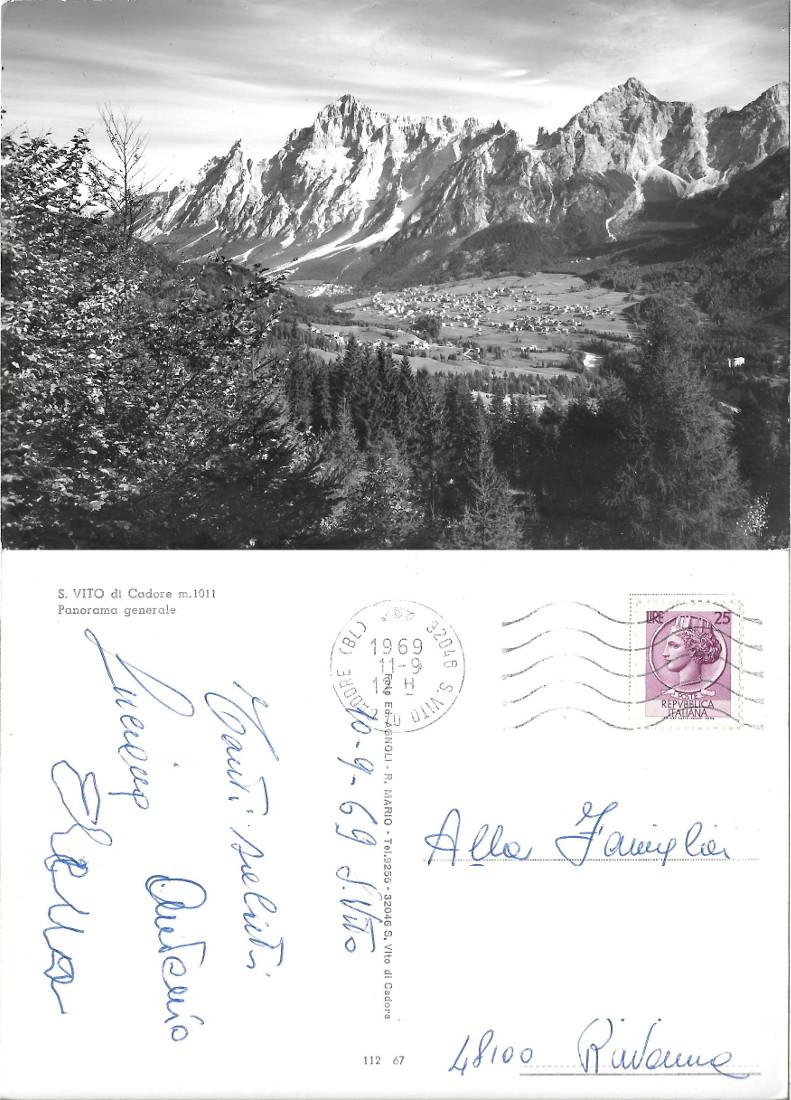 S. VITO di Cadore m.1011
Panorama generale
32046 S. VITO
CADORE (BL)
1969
11-9
LIRE 25
POSTE
REPVBBLICA
ITALIANA
10-9-69 S. Vito
Tanti saluti
Luciana
Antonio
Foto Ed. AGNOLI - R. MARIO - Tel.9256 - 32046 S. Vito di Cadore
Alla Famiglia
48100 Ravenna
112 67